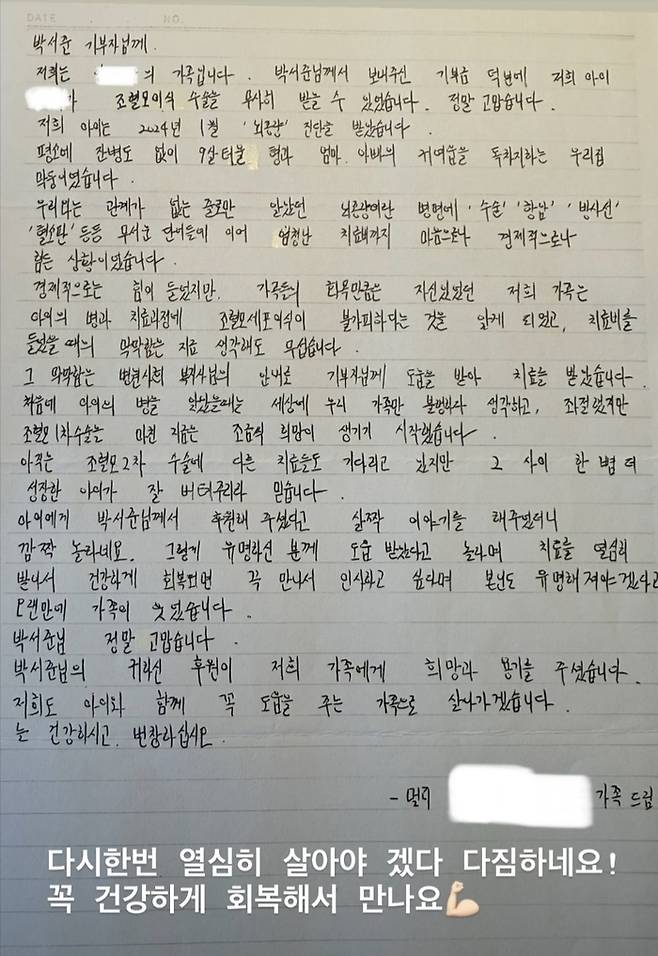 DATE . . NO.
박서준 기부자님께.
저희는 의 가족입니다. 박서준님께서 보내주신 기부금 덕분에 저희 아이
가 조혈모이식 수술을 무사히 받을 수 있었습니다. 정말 고맙습니다.
저희 아이는 2024년 1월 '뇌종양' 진단을 받았습니다.
평소에 잔병도 없이 9살 터울 형과 엄마. 아빠의 귀여움을 독차지하는 우리집
막둥이였습니다.
우리와는 관계가 없는 줄로만 알았던 뇌종양이란 병명에 '수술' '항암' '방사선'
'혈소판' 등등 무서운 단어들에 이어 엄청난 치료비까지 마음으로나 경제적으로나
힘든 상황이었습니다.
경제적으로는 힘이 들었지만. 가족들의 화목만큼은 자신있었던 저희 가족은
아이의 병과 치료과정에 조혈모세포이식이 불가피하다는 것을 알게 되었고, 치료비를
들었을 때의 막막함은 지금 생각해도 무섭습니다.
그 막막함은 병원사회 복지사님의 안내로 기부자님께 도움을 받아 치료를 받았습니다.
처음에 아이의 병을 알았을때는 세상에 우리 가족만 불행하다 생각하고, 좌절했지만
조혈모 1차수술을 마친 지금은 조금씩 희망이 생기기 시작했습니다.
아직은 조혈모 2차 수술에 다른 치료들도 기다리고 있지만 그 사이 한 뼘 더
성장한 아이가 잘 버텨주리라 믿습니다.
아이에게 박서준님께서 후원해 주셨다고 살짝 이야기를 해주었더니
깜짝 놀라네요. 그렇게 유명하신 분께 도움 받았다고 놀라며 치료를 열심히
받아서 건강하게 회복되면 꼭 만나서 인사하고 싶다며 본인도 유명해져야겠다고
오랜만에 가족이 웃었습니다.
박서준님 정말 고맙습니다.
박서준님의 귀하신 후원이 저희 가족에게 희망과 용기를 주셨습니다.
저희도 아이와 함께 꼭 도움을 주는 가족으로 살아가겠습니다.
늘 건강하시고. 번창하십시오.
- 멀리 가족 드림
다시한번 열심히 살아야 겠다 다짐하네요!
꼭 건강하게 회복해서 만나요💪🏻